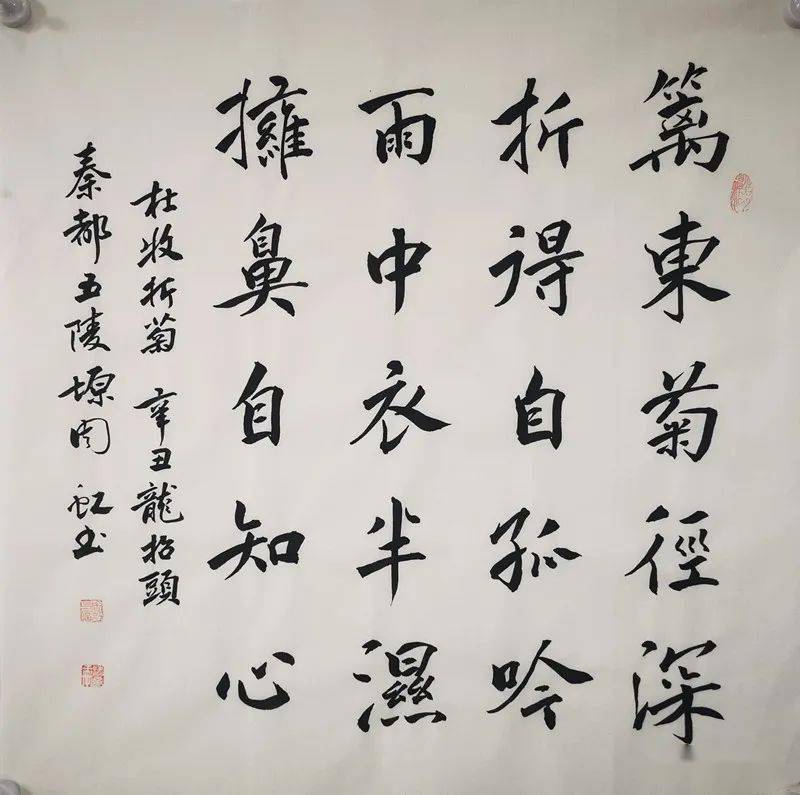 籬東菊徑深
折得自孤吟
雨中衣半濕
擁鼻自知心
杜牧折菊 辛丑龍抬頭
秦都五陵塬周虹書